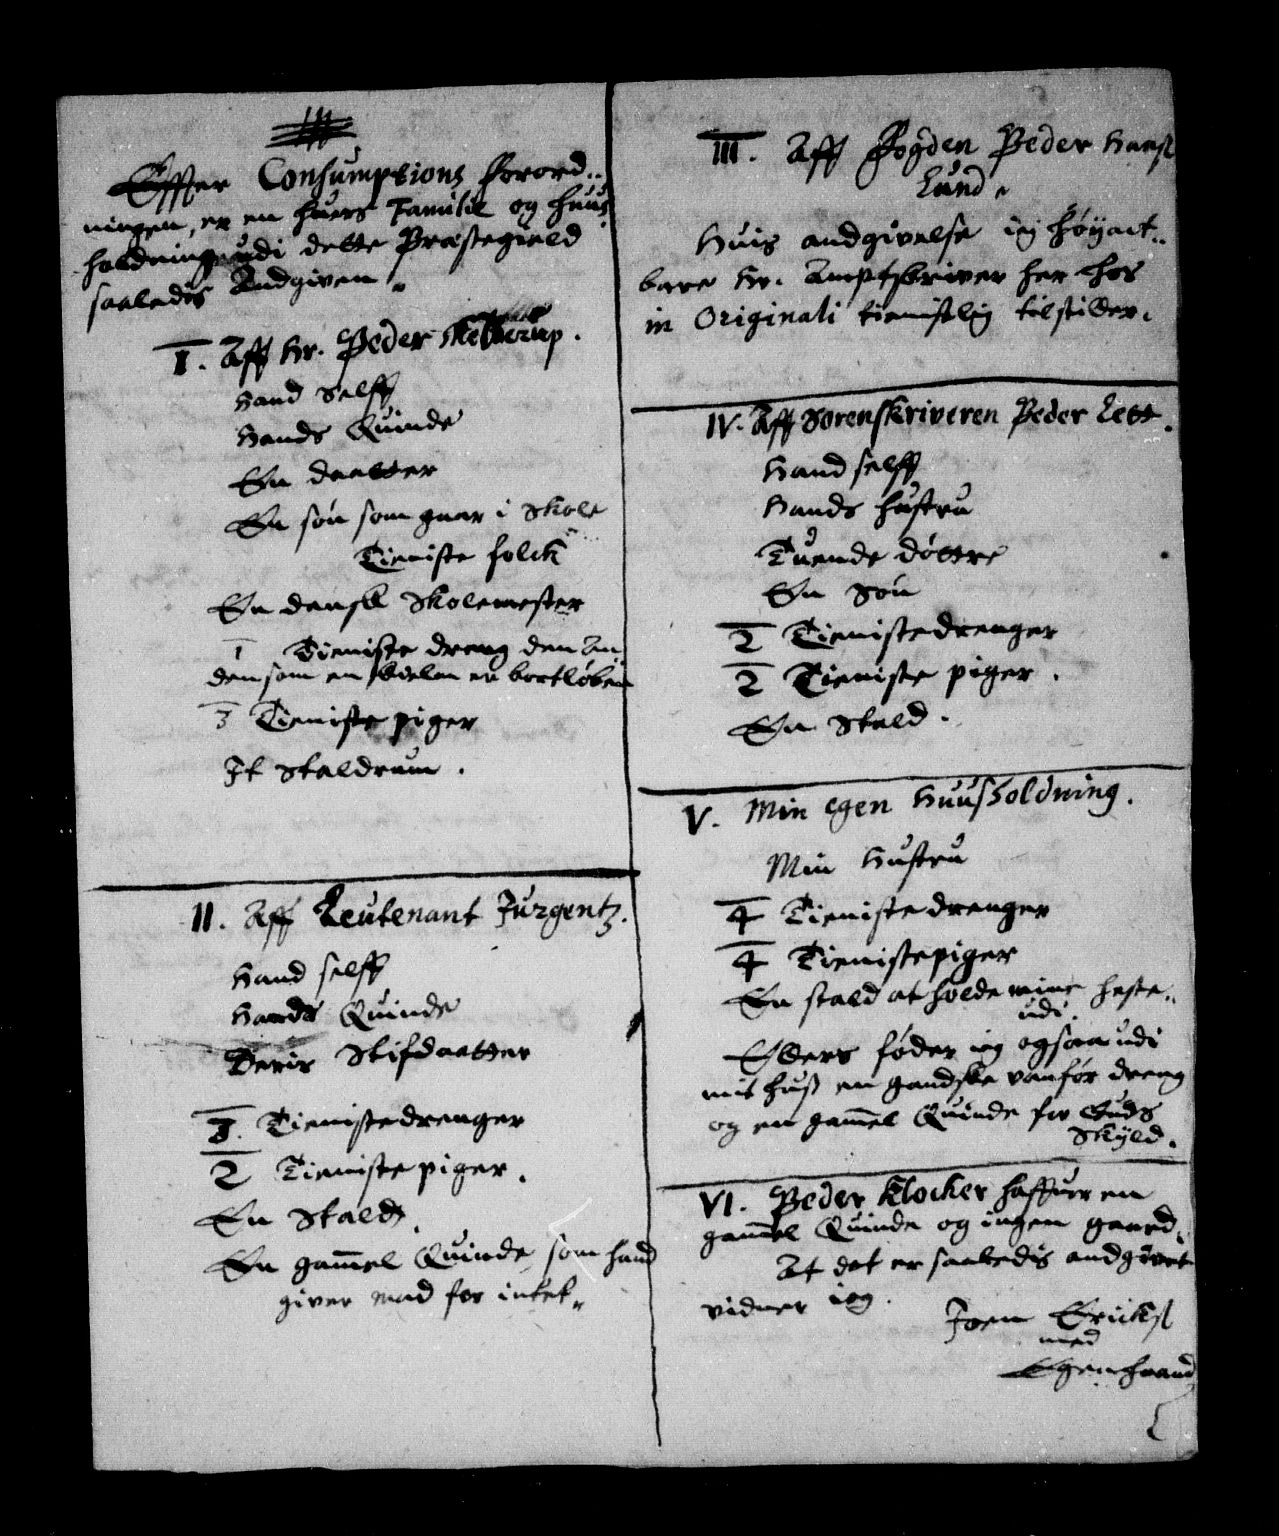 Effter Consumptions Forord..
ningen, er en huers Familie og huus
holdning udi dette Præstegield
saaledis Andgiven
I. Aff Hr. Peder
Hand selff
Hands Quinde
En daatter
En søn som gaar i Skole
Tieniste folck
En dansk Skolemester
1 Tieniste dreng den An
den som en Skielm er bortløben
3 Tieniste piger
It Staldrum.
II. Aff Leutenant Jurgentz.
Hand selff
Hands Quinde
Deris Stifdaatter
3. Tienistedrenger
2 Tieniste piger.
En Stald.
En gam̄el Quinde som hand
giver mad for intet„
III. Aff Fogden Peder Hanss
Lund.
Huis andgivelse ieg Høyact..
bare Hr. Amptskriver her hos
in Originali tienistlig tilstiller.
IV. Aff Sorenskriveren Peder Lett.
Hand selff
Hands hustru
Tuende døttre
En Søn
2 Tienistedrenger
2 Tieniste piger.
En Stald.
V. Min egen Huusholdning.
Min Hustru
4 Tienistedrenger
4 Tienistepiger
En stald at holde mine heste„
udi.
Ellers føder ieg ogsaa udi
mit huss en gandske vanfør dreng
og en gam̄el Quinde for Guds
Skyld.
VI. Peder Klocker haffuer en
gam̄el Quinde og ingen gaard.
At det er saaledis andgivet
vidner ieg.
Joen Erickss
med
Egenhaand